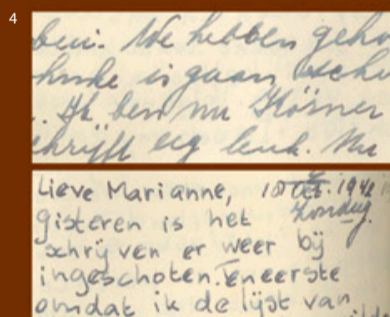 4
ben. We hebben geho
hinke is gaan sche
. Ik ben nu Körner
chrijft erg leuk. Nu
Lieve Marianne, 18 Oct. 1942
Zondag.
gisteren is het
schrijven er weer bij
ingeschoten. Teneerste
omdat ik de lijst van